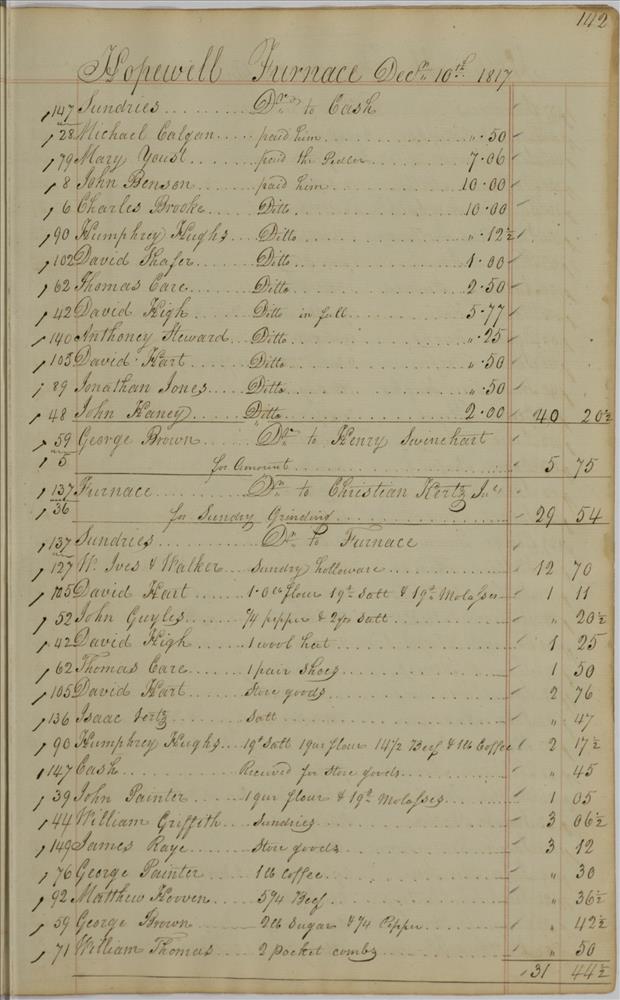 142
Hopewell Furnace Decr. 10th 1817
147 Sundries ........ Drs to Cash
28 Michael Calgan .... paid him ........ " .50
79 Mary Youst ....... paid the Pedler ........ 7.06
8 John Benson ....... paid him ........ 10.00
6 Charles Brooke ... Ditto ........ 10.00
90 Humphrey Hughs ... Ditto ........ " .12½
102 David Shafer ... Ditto ........ 1.00
62 Thomas Care ..... Ditto ........ 2.50
42 David High ..... Ditto in full ........ 5.77
140 Anthoney Steward .. Ditto ........ " .25
105 David Hart ..... Ditto ........ " .50
89 Jonathan Jones .... Ditto ........ " .50
48 John Haney ..... Ditto ........ 2.00 40 20½
59 George Brown .... Dr. to Henry Swinehart
5 for Amount ........ 5 75
137 Furnace ........ Dr. to Christian Kertz
36 for Sundry Grinding ........ 29 54
137 Sundries ........ Drs to Furnace
127 W. Ives & Walker .... Sundry holloware ........ 12 70
105 David Hart ...... flour 19t Salt & 19t Molasses 1 11
52 John Guyles ..... ¼ pepper & 2 qts Salt ........ " 20½
42 David High ..... 1 wool hat ........ 1 25
62 Thomas Care .... 1 pair Shoes ........ 1 50
105 David Hart .... Store goods ........ 2 76
136 Isaac ..... Salt ........ " 47
90 Humphrey Hughs .. 19t Salt 1 qur flour 14½ Beef & 1 lb Coffee 2 17½
147 Cash ........ Received for Store goods ........ " 45
39 John Painter ..... 1 qur flour & 19t Molasses ........ 1 05
44 William Griffith .. Sundries ........ 3 06½
149 James Kaye .... Store goods ........ 3 12
76 George Painter .... 1 lb Coffee ........ " 30
92 Matthew Hooven .... 5¾ Beef ........ " 36½
59 George Brown ..... 2 lb Sugar & ¼ Pepper ........ " 42½
71 William Thomas .... 2 pocket combs ........ " 50
31 44½